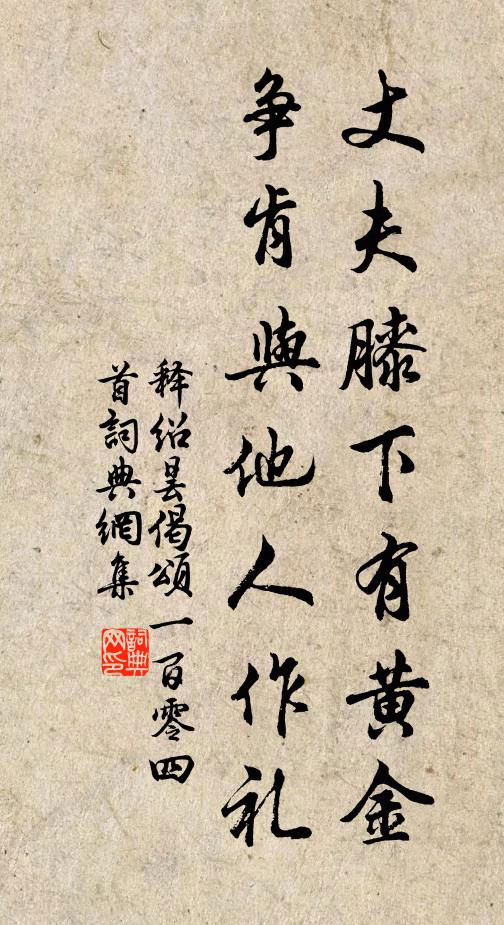 丈夫膝下有黄金
争肯與他人作礼
释绍昙偈頌一百零四
首詞典網集
詞典
网印